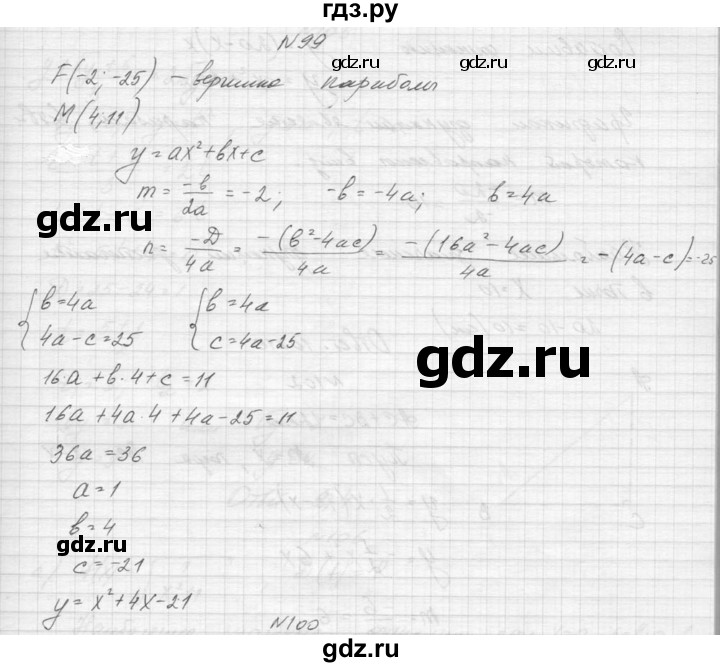 гдз.ру
N99
F(-2; -25) - вершина параболы
M(4; 11)
y=ax²+bx+c
m = -b/2a = -2; -b=-4a; b=4a
n = -D/4a = -(b²-4ac)/4a = -(16a²-4ac)/4a = -(4a-c)=-25
{b=4a {b=4a
{4a-c=25 {c=4a-25
gdz.ru
16a+b·4+c=11
16a+4a·4+4a-25=11
36a=36
a=1
b=4
gdz.ru
c=-21
y=x²+4x-21
N100
gdz.ru